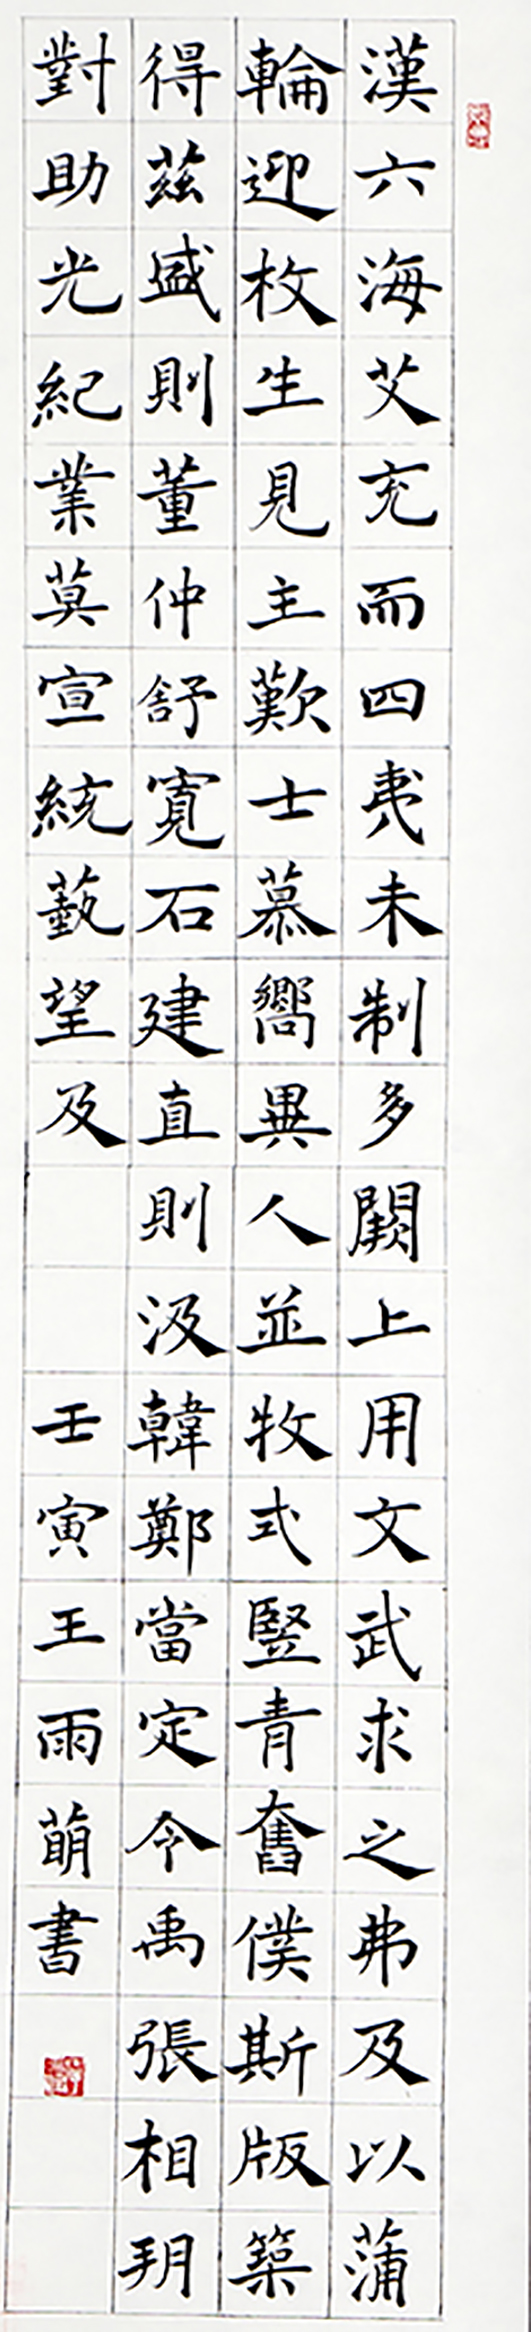 漢六海艾充而四夷未制多闕上用文武求之弗及以蒲
輪迎枚生見主歎士慕嚮異人並牧式豎青奮僕斯版築
得茲盛則董仲舒寬石建直則汲韓鄭當定令禹張相玥
對助光紀業莫宣統藝望及
壬寅王雨萌書